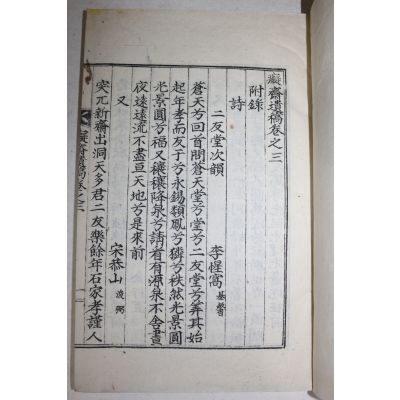 癡齋遺稿卷之三
附錄
詩
二友堂次韻
李惺窩
蒼天兮回首問蒼天堂兮堂兮二友堂兮筭其始
起年孝而友于兮永錫類鳳兮獜兮秩然光景圓
光景圓兮福又穰穰降泉兮請看有源泉不舍晝
夜遠遠流不盡亘天地兮是來前
又
宋恭山
突兀新齋出洞天多君二友樂餘年石家孝謹人
癡齋遺稿卷之三